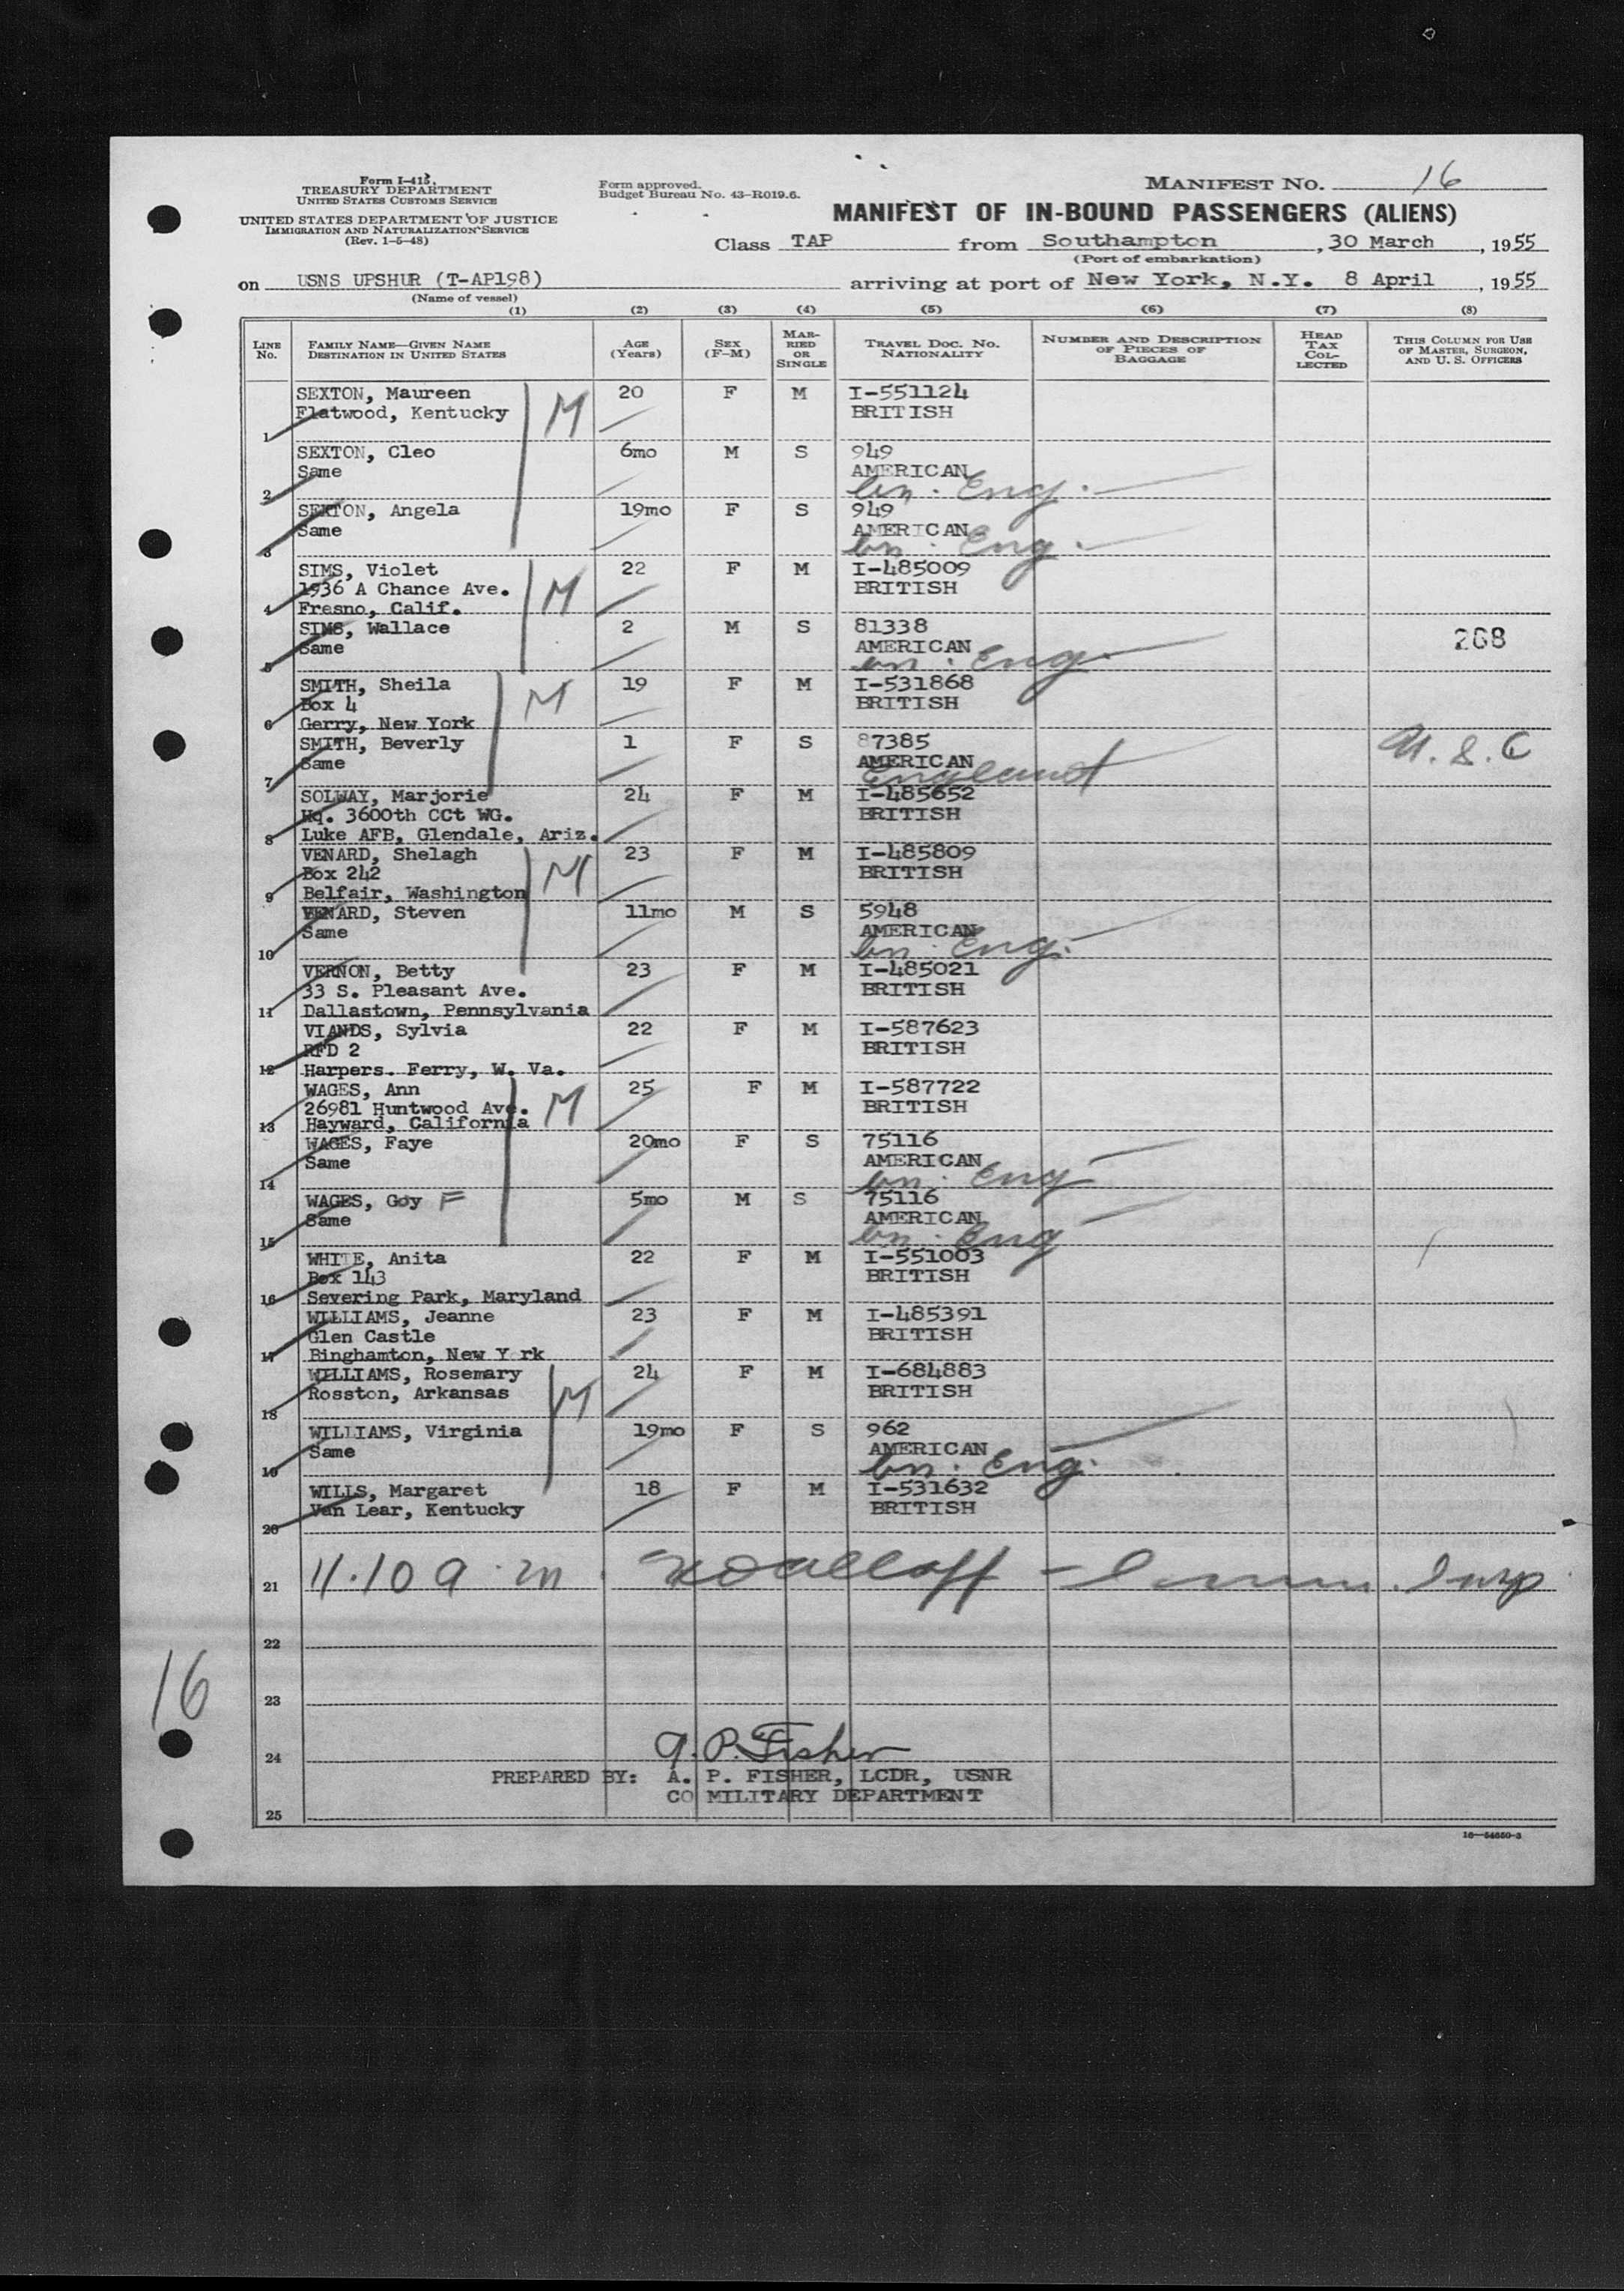 Form I-415.
TREASURY DEPARTMENT
UNITED STATES CUSTOMS SERVICE
UNITED STATES DEPARTMENT OF JUSTICE
IMMIGRATION AND NATURALIZATION SERVICE
(Rev. 1-5-48)
Form approved.
Budget Bureau No. 43-R019.6.
MANIFEST NO. 16
MANIFEST OF IN-BOUND PASSENGERS (ALIENS)
Class TAP from Southampton, 30 March, 1955
(Port of embarkation)
on USNS UPSHUR (T-AP198) arriving at port of New York, N.Y. 8 April, 1955
(Name of vessel)
(1) (2) (3) (4) (5) (6) (7) (8)
LINE No. FAMILY NAME—GIVEN NAME DESTINATION IN UNITED STATES AGE (Years) SEX (F-M) MARRIED OR SINGLE TRAVEL DOC. NO. NATIONALITY NUMBER AND DESCRIPTION OF PIECES OF BAGGAGE HEAD TAX COLLECTED THIS COLUMN FOR USE OF MASTER, SURGEON, AND U. S. OFFICERS
SEXTON, Maureen 20 F M I-551124
Flatwood, Kentucky M BRITISH
1
SEXTON, Cleo 6mo M S 949
Same AMERICAN
2 bn. Eng.
SEXTON, Angela 19mo F S 949
Same AMERICAN
3 bn. Eng.
SIMS, Violet 22 F M I-485009
1936 A Chance Ave. M BRITISH
4 Fresno, Calif.
SIMS, Wallace 2 M S 81338 268
Same AMERICAN
5 bn. Eng.
SMITH, Sheila 19 F M I-531868
Box 4 M BRITISH
6 Gerry, New York
SMITH, Beverly 1 F S 87385 U.S.C
Same AMERICAN
7 England
SOLWAY, Marjorie 24 F M I-485652
Hq. 3600th CCt WG. BRITISH
8 Luke AFB, Glendale, Ariz.
VENARD, Shelagh 23 F M I-485809
Box 242 M BRITISH
9 Belfair, Washington
VENARD, Steven 11mo M S 5948
Same AMERICAN
10 bn. Eng.
VERNON, Betty 23 F M I-485021
33 S. Pleasant Ave. BRITISH
11 Dallastown, Pennsylvania
VIANDS, Sylvia 22 F M I-587623
RFD 2 BRITISH
12 Harpers. Ferry, W. Va.
WAGES, Ann 25 F M I-587722
26981 Huntwood Ave. M BRITISH
13 Hayward, California
WAGES, Faye 20mo F S 75116
Same AMERICAN
14 bn. Eng
WAGES, Goy F 5mo M S 75116
Same AMERICAN
15 bn. Eng
WHITE, Anita 22 F M I-551003
Box 143 BRITISH
16 Severing Park, Maryland
WILLIAMS, Jeanne 23 F M I-485391
Glen Castle BRITISH
17 Binghamton, New Y rk
WILLIAMS, Rosemary 24 F M I-684883
Rosston, Arkansas M BRITISH
18
WILLIAMS, Virginia 19mo F S 962
Same AMERICAN
19 bn. Eng.
WILLS, Margaret 18 F M I-531632
Van Lear, Kentucky BRITISH
20
21 11.10 a.m. Imm. Insp
22
16
23
24 A. P. Fisher
PREPARED BY: A. P. FISHER, LCDR, USNR
CO MILITARY DEPARTMENT
25
16—54650-3